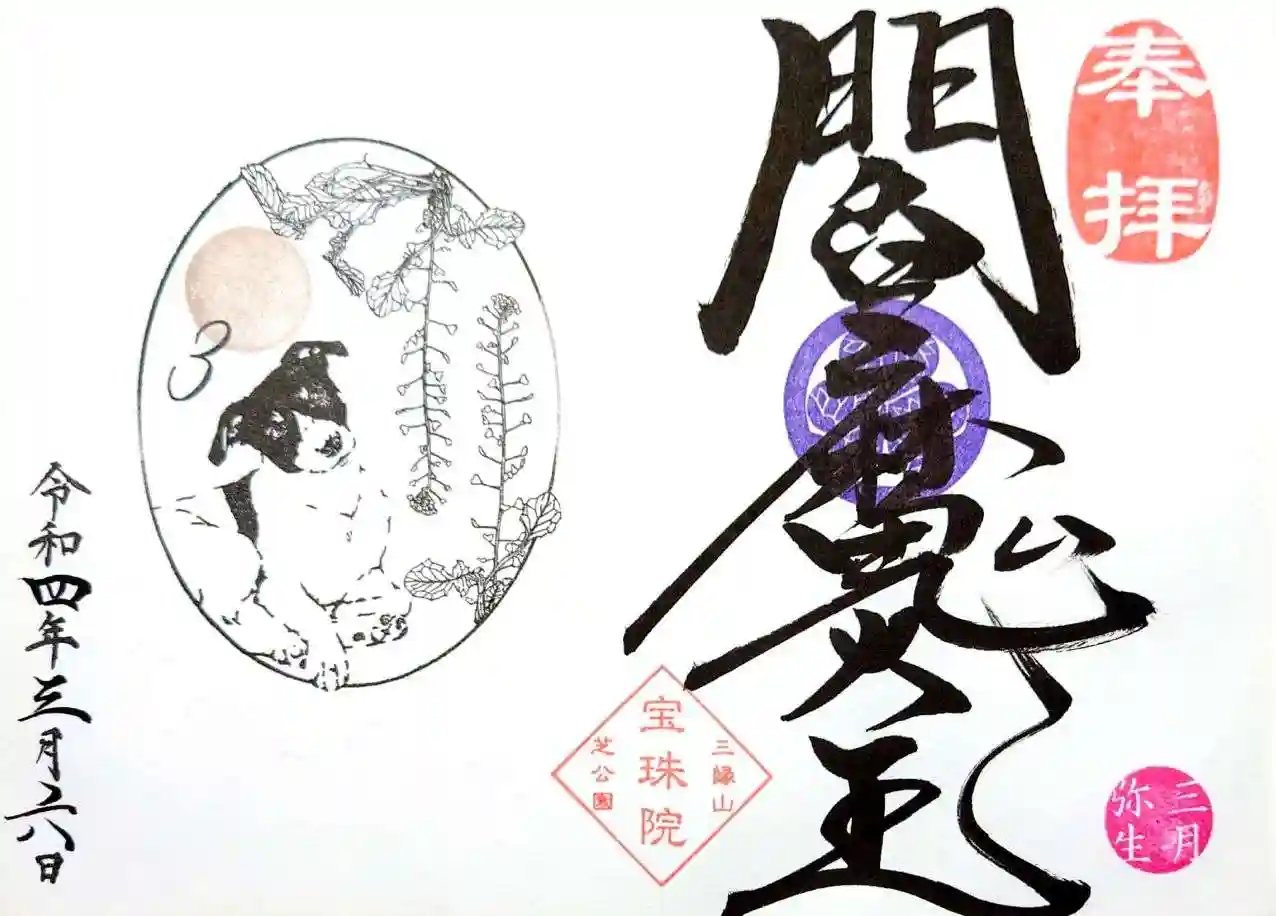 奉拝
閻魔大王
三月
弥生
三縁山
宝珠院
芝公園
3
令和四年三月二八日